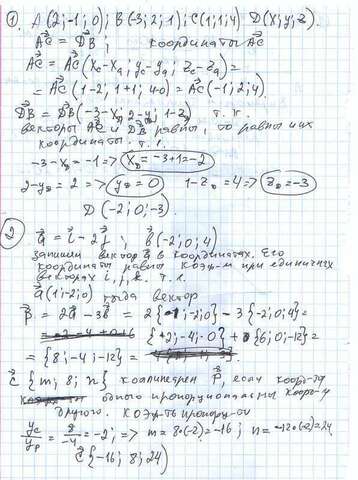 1. A(2;-1;0); B(-3;2;1); C(1;1;4) D(x;y;z).
AC = DB; координаты AC
AC = AC(Xc-Xa; yc-ya; zc-za) =
= AC(1-2; 1+1; 4-0) = AC(-1; 2; 4)
DB = DB(-3-x; 2-y; 1-z) т. к.
векторы AC и DB равны, то равны и их
координаты. т. е.
-3-XD = -1 => XD = -3+1 = -2
2-yD = 2 => yD = 0 1-zD = 4 => zD = -3
D(-2; 0; -3)
2 a = i - 2j; b(-2; 0; 4)
запишем вектор a в координатах. Его
координаты равны коэф-м при единичных
векторах i, j, k. т. е.
a(1; -2; 0) тогда вектор
p = 2a - 3b = 2{1; -2; 0} - 3{-2; 0; 4} =
{2; -4; 0} + {6; 0; -12} =
= {8; -4; -12} =
c{m; 8; n} коллинеарен p, если коорд-ты
одного пропорциональны коорд-м
другого. Коэф-т пропорц-ти
yc/yp = 8/-4 = -2; => m = 8·(-2) = -16; n = -12·(-2) = 24
c{-16; 8; 24}